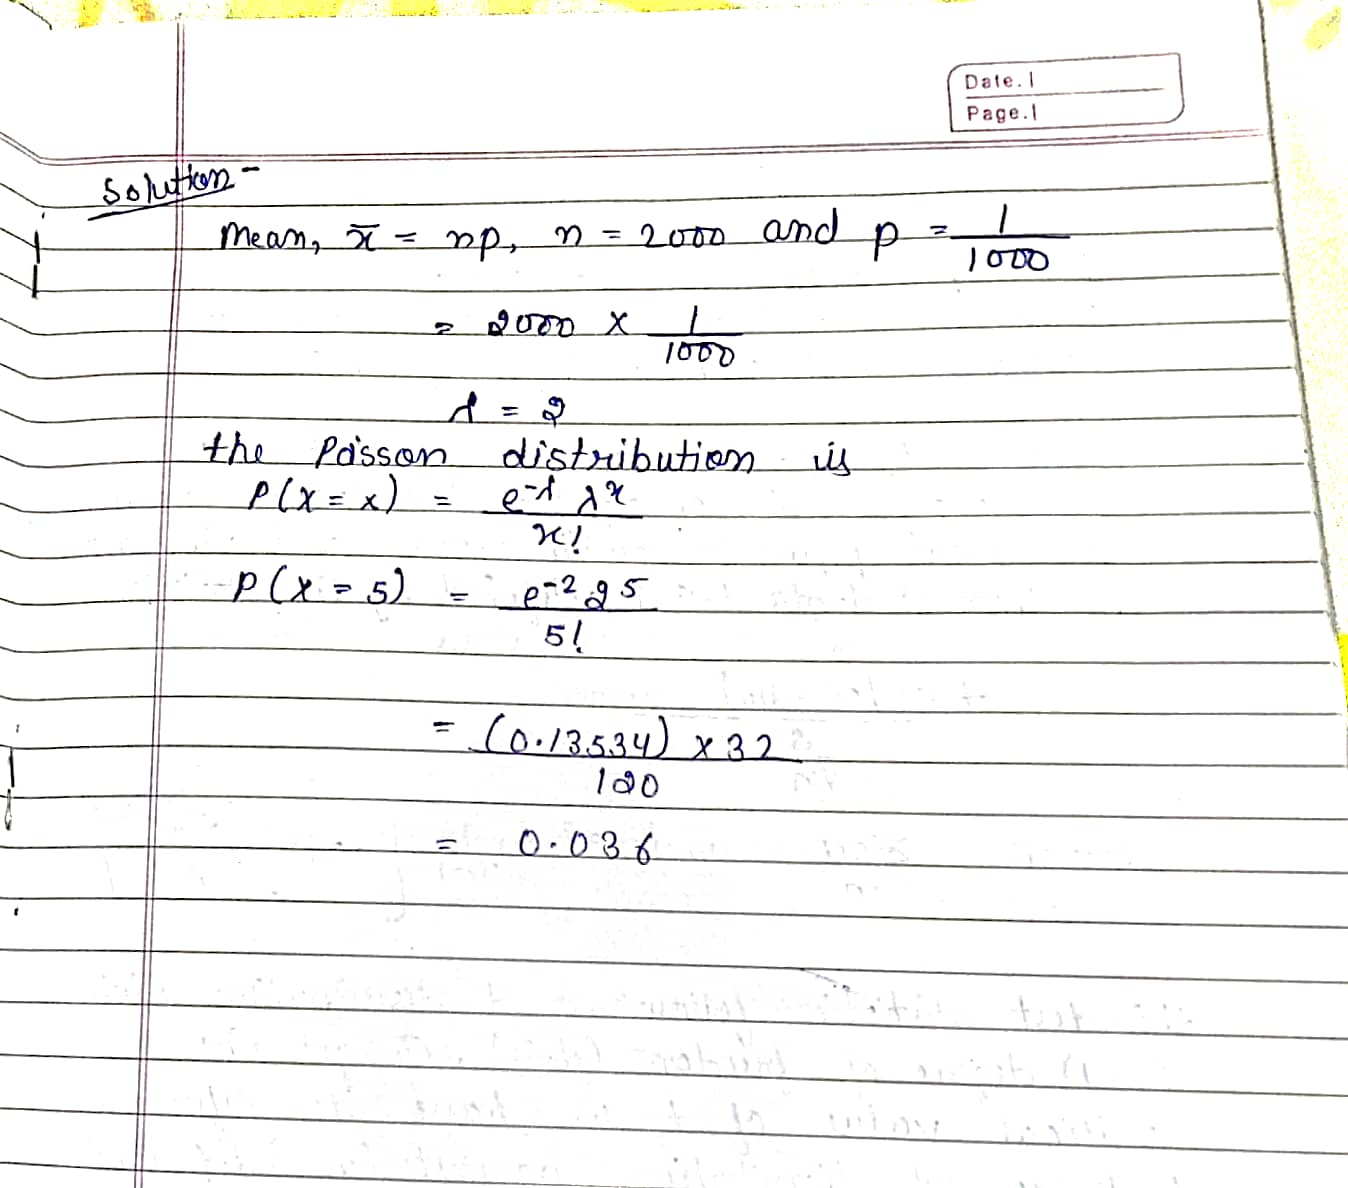 Date.
Page.
Solution -
Mean, x̄ = np, n = 2000 and p = 1/1000
= 2000 × 1/1000
λ = 2
the Poisson distribution is
P(X = x) = e^-λ λ^x / x!
P(X = 5) = e^-2 2^5 / 5!
= (0.13534) × 32 / 120
= 0.036